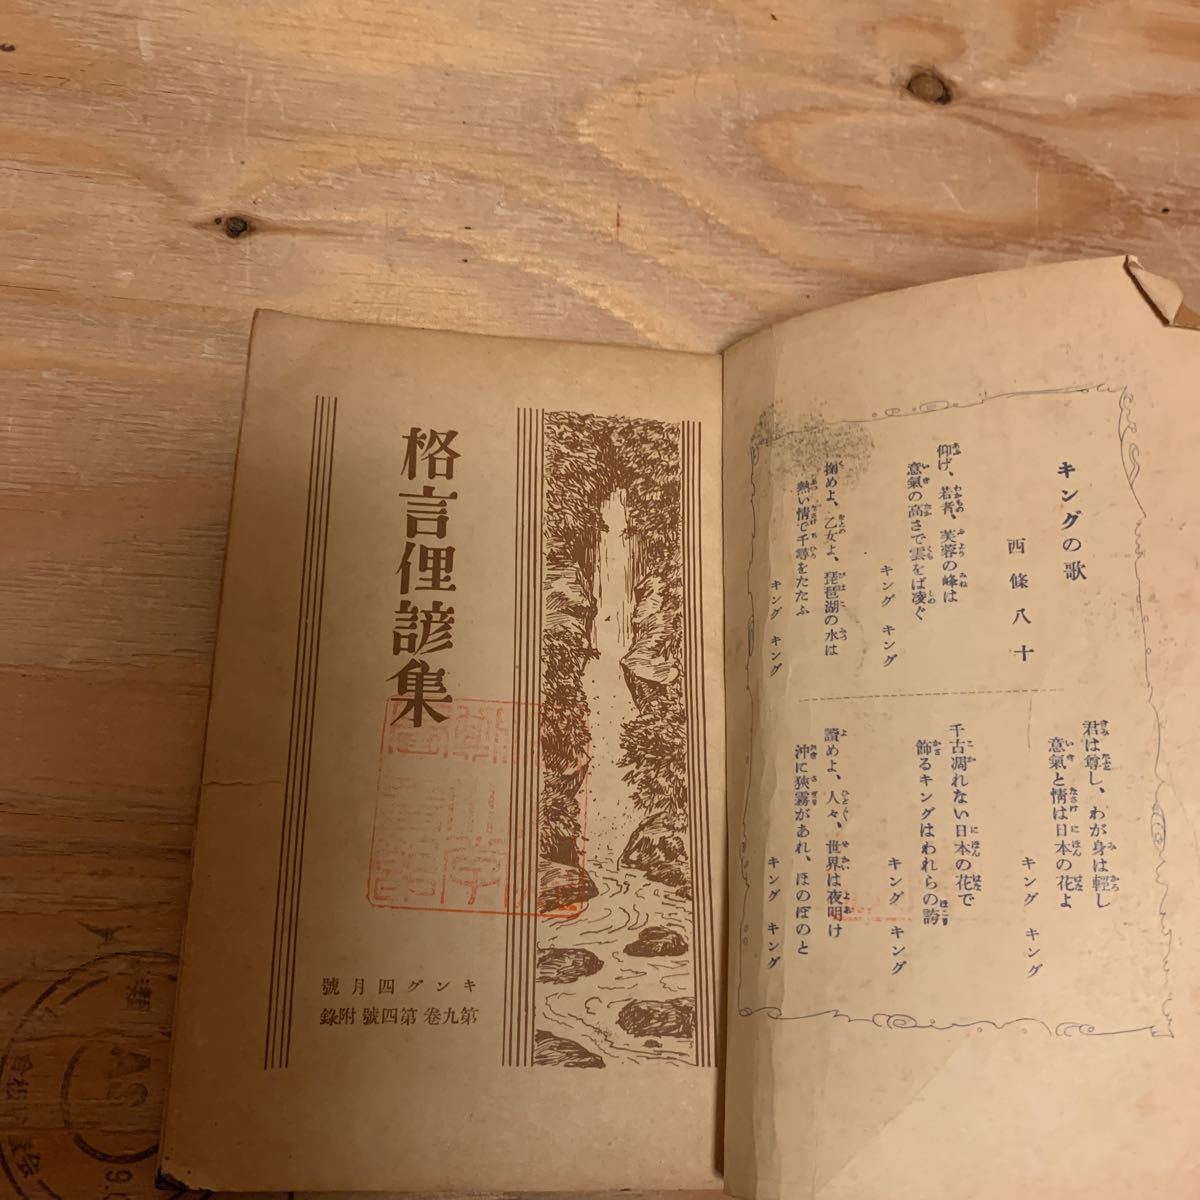 キングの歌
西條八十
仰げ、若者、芙蓉の峰は
意氣の高さで雲をば凌ぐ
キング キング
掬めよ、乙女よ、琵琶湖の水は
熱い情で千尋をたたふ
キング キング
君は尊し、わが身は輕し
意氣と情は日本の花よ
キング キング
千古凋れない日本の花で
飾るキングはわれらの誇
キング キング
讀めよ、人々、世界は夜明け
沖に狹霧があれ、ほのぼのと
キング キング
格言俚諺集
キング四月號
第九卷 第四號 附錄
AS